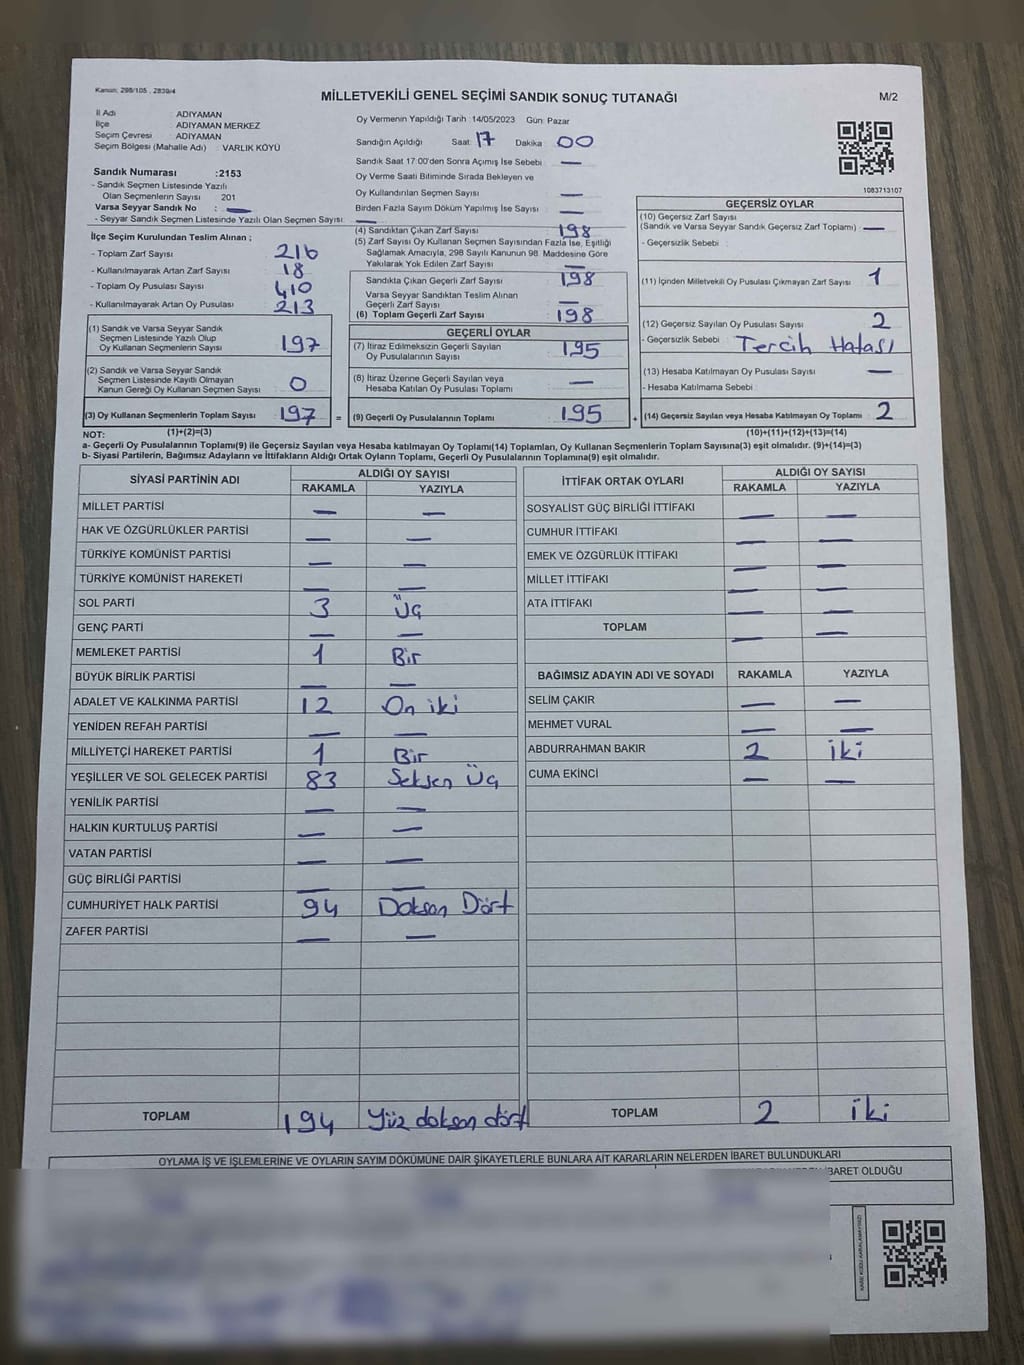 Kanun: 298/105 , 2839/4
MİLLETVEKİLİ GENEL SEÇİMİ SANDIK SONUÇ TUTANAĞI
M/2
İl Adı : ADIYAMAN
İlçe : ADIYAMAN MERKEZ
Seçim Çevresi : ADIYAMAN
Seçim Bölgesi (Mahalle Adı) : VARLIK KÖYÜ
Sandık Numarası :2153
- Sandık Seçmen Listesinde Yazılı
Olan Seçmenlerin Sayısı : 201
Varsa Seyyar Sandık No : —
- Seyyar Sandık Seçmen Listesinde Yazılı Olan Seçmen Sayısı: —
Oy Vermenin Yapıldığı Tarih :14/05/2023 Gün: Pazar
Sandığın Açıldığı Saat: 17 Dakika : 00
Sandık Saat 17:00'den Sonra Açımış İse Sebebi : —
Oy Verme Saati Bitiminde Sırada Bekleyen ve
Oy Kullandırılan Seçmen Sayısı : —
Birden Fazla Sayım Döküm Yapılmış İse Sayısı : —
1083713107
İlçe Seçim Kurulundan Teslim Alınan ;
- Toplam Zarf Sayısı : 216
- Kullanılmayarak Artan Zarf Sayısı : 18
- Toplam Oy Pusulası Sayısı : 410
- Kullanılmayarak Artan Oy Pusulası : 213
(1) Sandık ve Varsa Seyyar Sandık
Seçmen Listesinde Yazılı Olup
Oy Kullanan Seçmenlerin Sayısı : 197
(2) Sandık ve Varsa Seyyar Sandık
Seçmen Listesinde Kayıtlı Olmayan
Kanun Gereği Oy Kullanan Seçmen Sayısı : 0
(3) Oy Kullanan Seçmenlerin Toplam Sayısı : 197 =
(1)+(2)=(3)
(4) Sandıktan Çıkan Zarf Sayısı : 198
(5) Zarf Sayısı Oy Kullanan Seçmen Sayısından Fazla İse, Eşitliği
Sağlamak Amacıyla, 298 Sayılı Kanunun 98. Maddesine Göre
Yakılarak Yok Edilen Zarf Sayısı : —
Sandıkta Çıkan Geçerli Zarf Sayısı : 198
Varsa Seyyar Sandıktan Teslim Alınan
Geçerli Zarf Sayısı : —
(6) Toplam Geçerli Zarf Sayısı : 198
GEÇERLİ OYLAR
(7) İtiraz Edilmeksizin Geçerli Sayılan
Oy Pusulalarının Sayısı : 195
(8) İtiraz Üzerine Geçerli Sayılan veya
Hesaba Katılan Oy Pusulası Toplamı : —
(9) Geçerli Oy Pusulalarının Toplamı : 195 +
GEÇERSİZ OYLAR
(10) Geçersiz Zarf Sayısı
(Sandık ve Varsa Seyyar Sandık Geçersiz Zarf Toplamı) : —
- Geçersizlik Sebebi :
(11) İçinden Milletvekili Oy Pusulası Çıkmayan Zarf Sayısı : 1
(12) Geçersiz Sayılan Oy Pusulası Sayısı : 2
- Geçersizlik Sebebi : Tercih Hatası
(13) Hesaba Katılmayan Oy Pusulası Sayısı : —
- Hesaba Katılmama Sebebi :
(14) Geçersiz Sayılan veya Hesaba Katılmayan Oy Toplamı : 2
(10)+(11)+(12)+(13)=(14)
NOT:
a- Geçerli Oy Pusulalarının Toplamı(9) ile Geçersiz Sayılan veya Hesaba katılmayan Oy Toplamı(14) Toplamları, Oy Kullanan Seçmenlerin Toplam Sayısına(3) eşit olmalıdır. (9)+(14)=(3)
b- Siyasi Partilerin, Bağımsız Adayların ve İttifakların Aldığı Ortak Oyların Toplamı, Geçerli Oy Pusulalarının Toplamına(9) eşit olmalıdır.
SİYASİ PARTİNİN ADI ALDIĞI OY SAYISI
RAKAMLA YAZIYLA
MİLLET PARTİSİ — —
HAK VE ÖZGÜRLÜKLER PARTİSİ — —
TÜRKİYE KOMÜNİST PARTİSİ — —
TÜRKİYE KOMÜNİST HAREKETİ — —
SOL PARTİ 3 Üç
GENÇ PARTİ — —
MEMLEKET PARTİSİ 1 Bir
BÜYÜK BİRLİK PARTİSİ — —
ADALET VE KALKINMA PARTİSİ 12 On iki
YENİDEN REFAH PARTİSİ — —
MİLLİYETÇİ HAREKET PARTİSİ 1 Bir
YEŞİLLER VE SOL GELECEK PARTİSİ 83 Seksen Üç
YENİLİK PARTİSİ — —
HALKIN KURTULUŞ PARTİSİ — —
VATAN PARTİSİ — —
GÜÇ BİRLİĞİ PARTİSİ — —
CUMHURİYET HALK PARTİSİ 94 Doksan Dört
ZAFER PARTİSİ — —
TOPLAM 194 Yüz doksan dört
İTTİFAK ORTAK OYLARI ALDIĞI OY SAYISI
RAKAMLA YAZIYLA
SOSYALİST GÜÇ BİRLİĞİ İTTİFAKI — —
CUMHUR İTTİFAKI — —
EMEK VE ÖZGÜRLÜK İTTİFAKI — —
MİLLET İTTİFAKI — —
ATA İTTİFAKI — —
TOPLAM — —
BAĞIMSIZ ADAYIN ADI VE SOYADI RAKAMLA YAZIYLA
SELİM ÇAKIR — —
MEHMET VURAL — —
ABDURRAHMAN BAKIR 2 iki
CUMA EKİNCİ — —
TOPLAM 2 iki
OYLAMA İŞ VE İŞLEMLERİNE VE OYLARIN SAYIM DÖKÜMÜNE DAİR ŞİKAYETLERLE BUNLARA AİT KARARLARIN NELERDEN İBARET BULUNDUKLARI
İBARET OLDUĞU